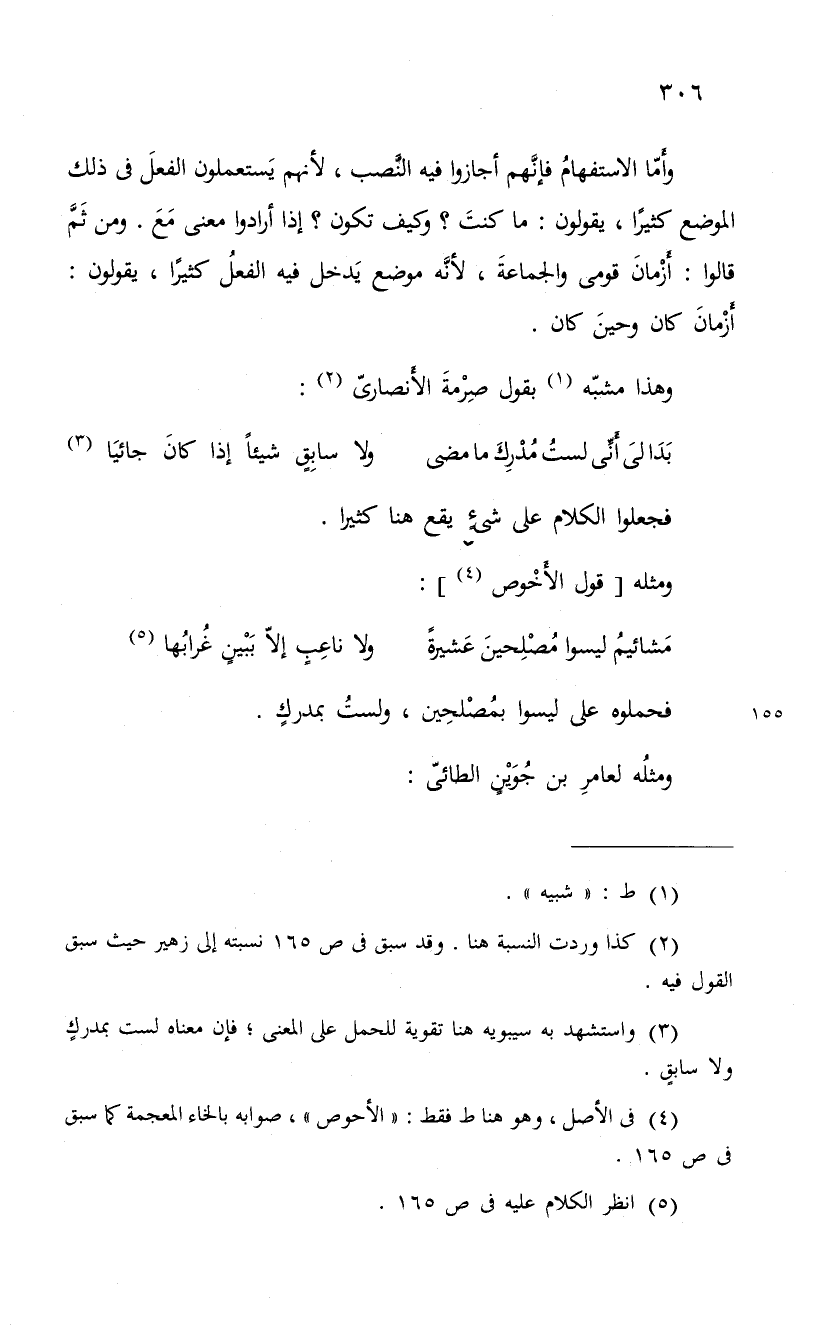 ٣٠٦
وأَمّا الاستفهامُ فإنَّهم أجازوا فيه النَّصب ، لأنهم يَستعملون الفعلَ فى ذلك
الموضع كثيرًا ، يقولون : ما كنتَ ؟ وكيف تكون ؟ إذا أرادوا معنى مَعَ . ومن ثَمَّ
قالوا : أَزْمانَ قومى والجماعةَ ، لأنَّه موضع يَدخل فيه الفعلُ كثيرًا ، يقولون :
أَزْمانَ كان وحينَ كان .
وهذا مشبّه (١) بقول صِرْمةَ الأَنصارىّ (٢) :
بَدَا لىَ أَنِّى لستُ مُدْرِكَ ما مضى ولا سابِقٍ شيئاً إذا كانَ جائيَا (٣)
فجعلوا الكلام على شىءٍ يقع هنا كثيرا .
ومثله [ قول الأَخْوص (٤) ] :
مَشائيمُ ليسوا مُصْلِحينَ عَشيرةً ولا ناعِبٍ إلاّ بَبْينٍ غُرابُها (٥)
فحملوه على ليسوا بمُصْلحِين ، ولستُ بمدركٍ . ١٥٥
ومثلُه لعامرِ بن جُوَيْنٍ الطائىّ :
(١) ط : « شبيه » .
(٢) كذا وردت النسبة هنا . وقد سبق فى ص ١٦٥ نسبته إلى زهير حيث سبق
القول فيه .
(٣) واستشهد به سيبويه هنا تقوية للحمل على المعنى ؛ فإن معناه لست بمدركٍ
ولا سابقٍ .
(٤) فى الأصل ، وهو هنا ط فقط : « الأحوص » ، صوابه بالخاء المعجمة كما سبق
فى ص ١٦٥ .
(٥) انظر الكلام عليه فى ص ١٦٥ .